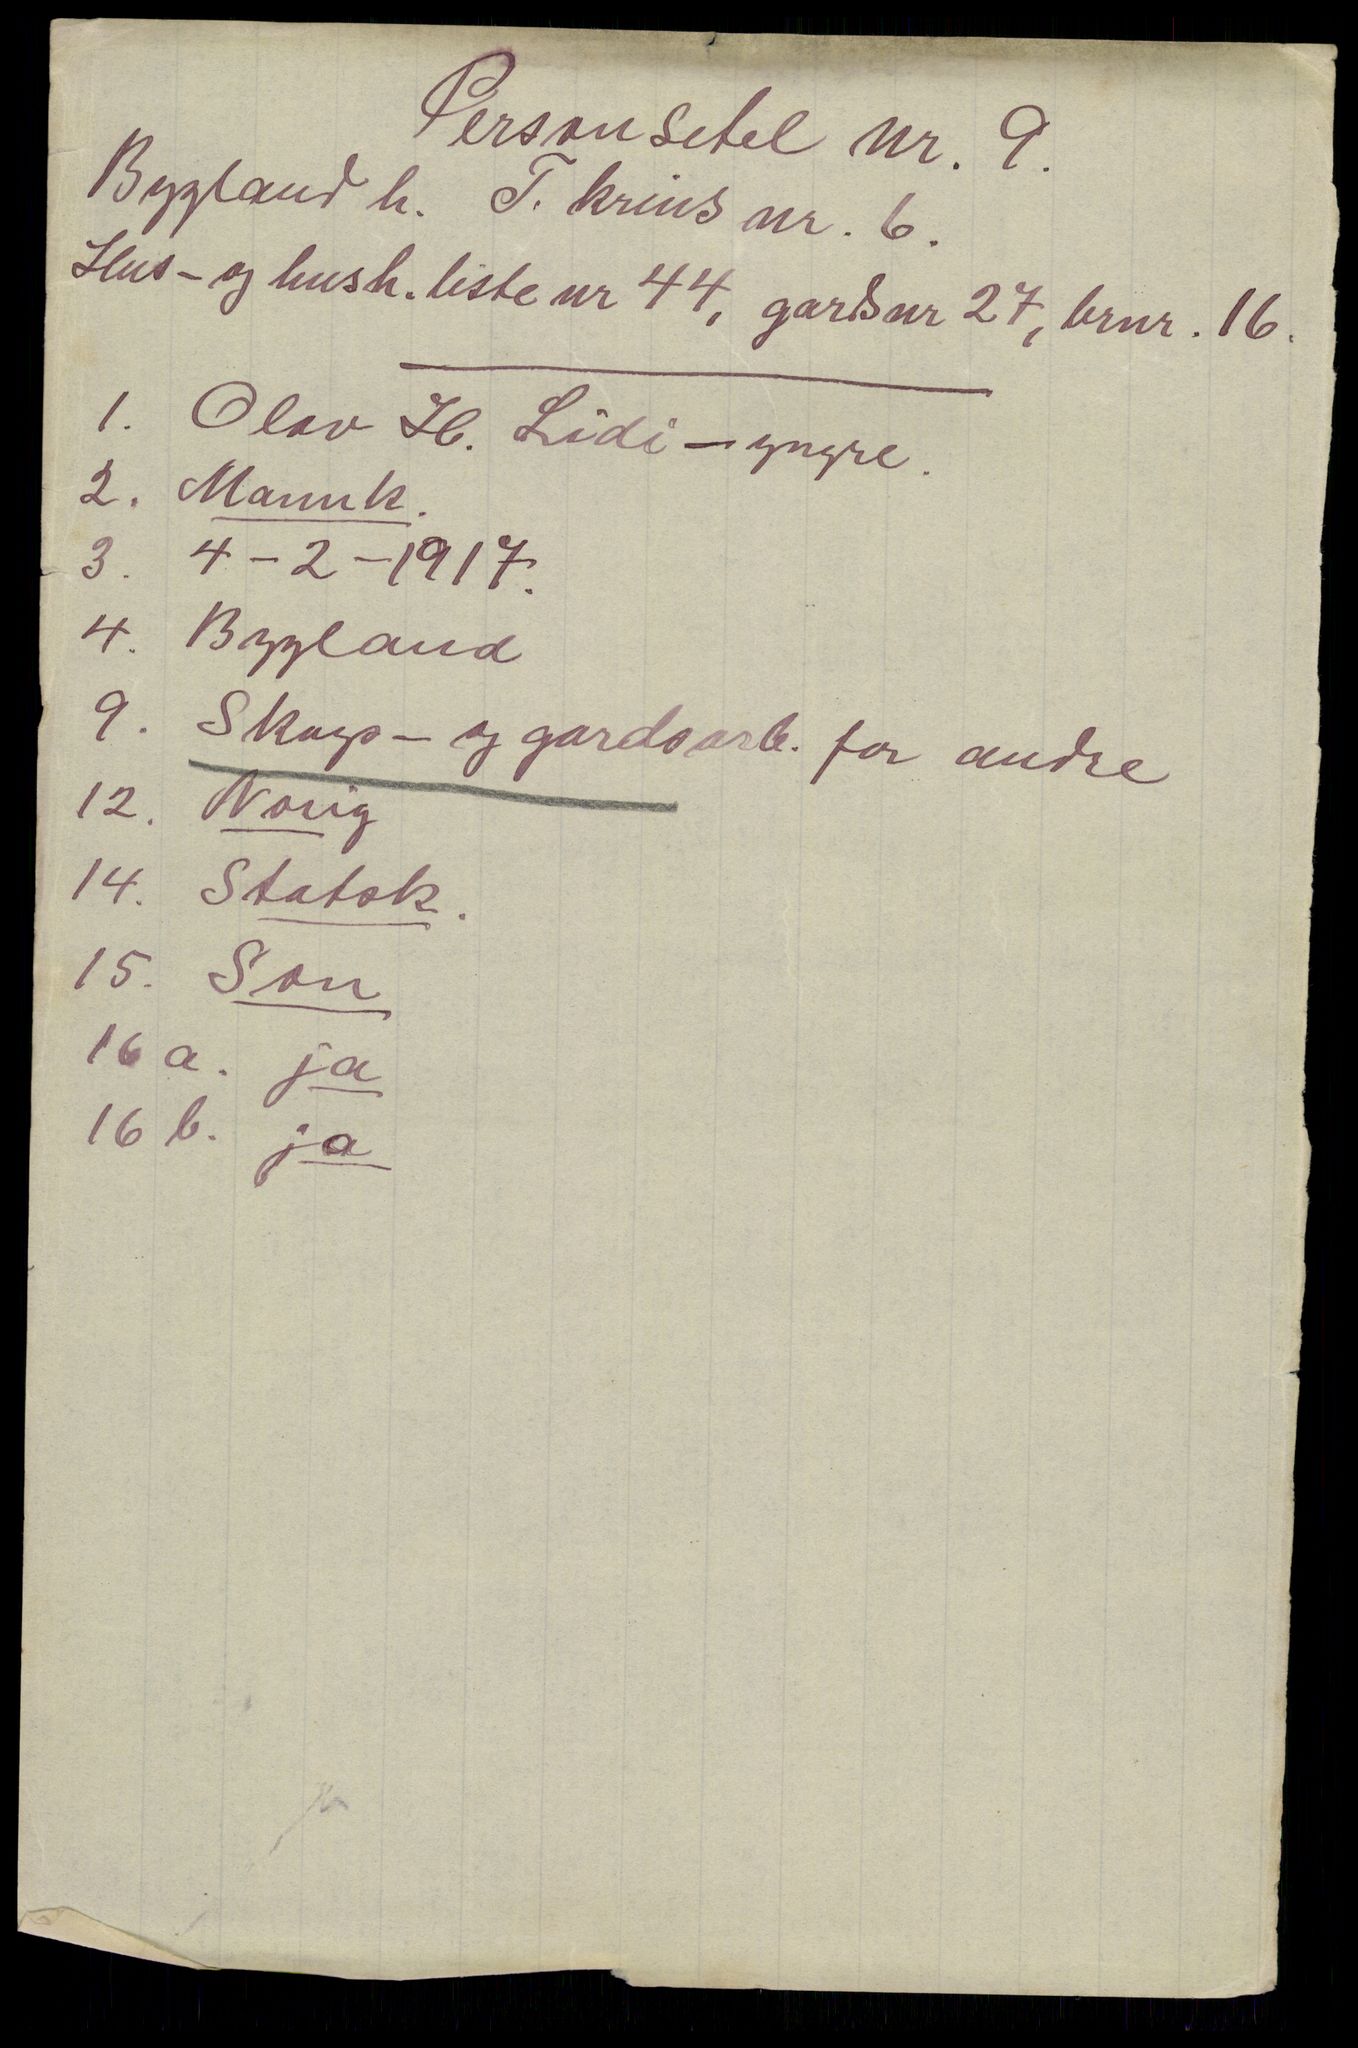 Personsetel nr. 9.
Bygland h. T. krins nr. 6.
Hus- og hush. liste nr 44, gardsnr 27, brnr. 16.
1. Olav H. Lidi - yngre.
2. Mannk.
3. 4-2-1917.
4. Bygland
9. Skogs- og gardsarb. for andre
12. Norig
14. Statsk.
15. Son
16 a. ja
16 b. ja